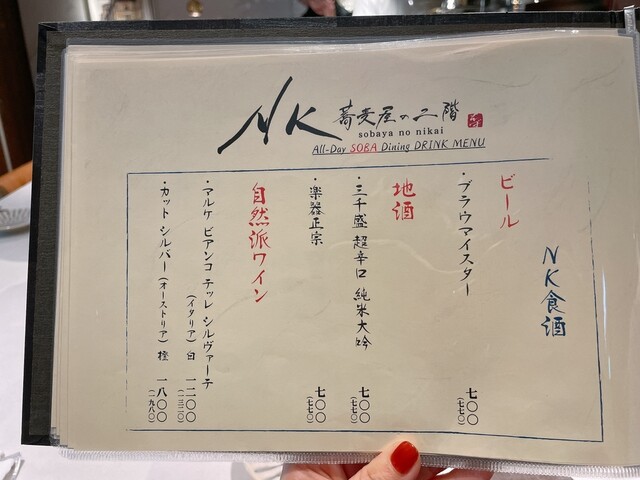 NK 蕎麦屋の二階
sobaya no nikai
All-Day SOBA Dining DRINK MENU
NK食酒
ビール
・ブラウマイスター 七〇〇
(七七〇)
地酒
・三千盛 超辛口 純米大吟 七〇〇
(七七〇)
・楽器正宗 七〇〇
(七七〇)
自然派ワイン
・アルケ ビアンコ テッレ シルヴァーテ
(イタリア) 白 一二〇〇
(一三二〇)
・カット シルバー(オーストリア) 橙 一八〇〇
(一九八〇)